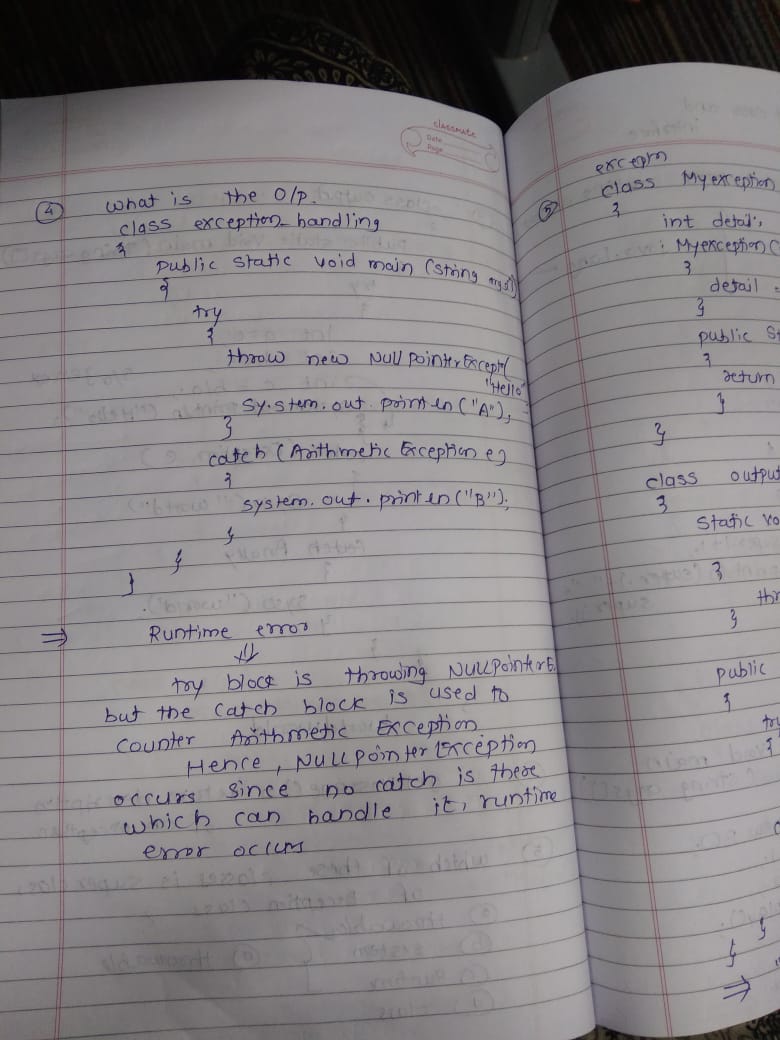 classmate
Date
Page
④ What is the O/P.
class exception_handling
{
public static void main (string args[])
{
try
{
throw new NullPointerExcept(
"Hello"
System.out.println("A");
}
catch (Arithmetic Exception e)
{
system.out.println("B");
}
}
}
⇒ Runtime error
⇓
try block is throwing NullPointerE.
but the catch block is used to
counter Arithmetic Exception
Hence, NullPointerException
occurs since no catch is there
which can handle it, runtime
error occurs
exceptn
⑤ class Myexception
{
int detail;
Myexception(
{
detail =
}
public st
{
return
}
}
class output
{
static vo
{
thr
}
public
{
try
{
}
}
⇒